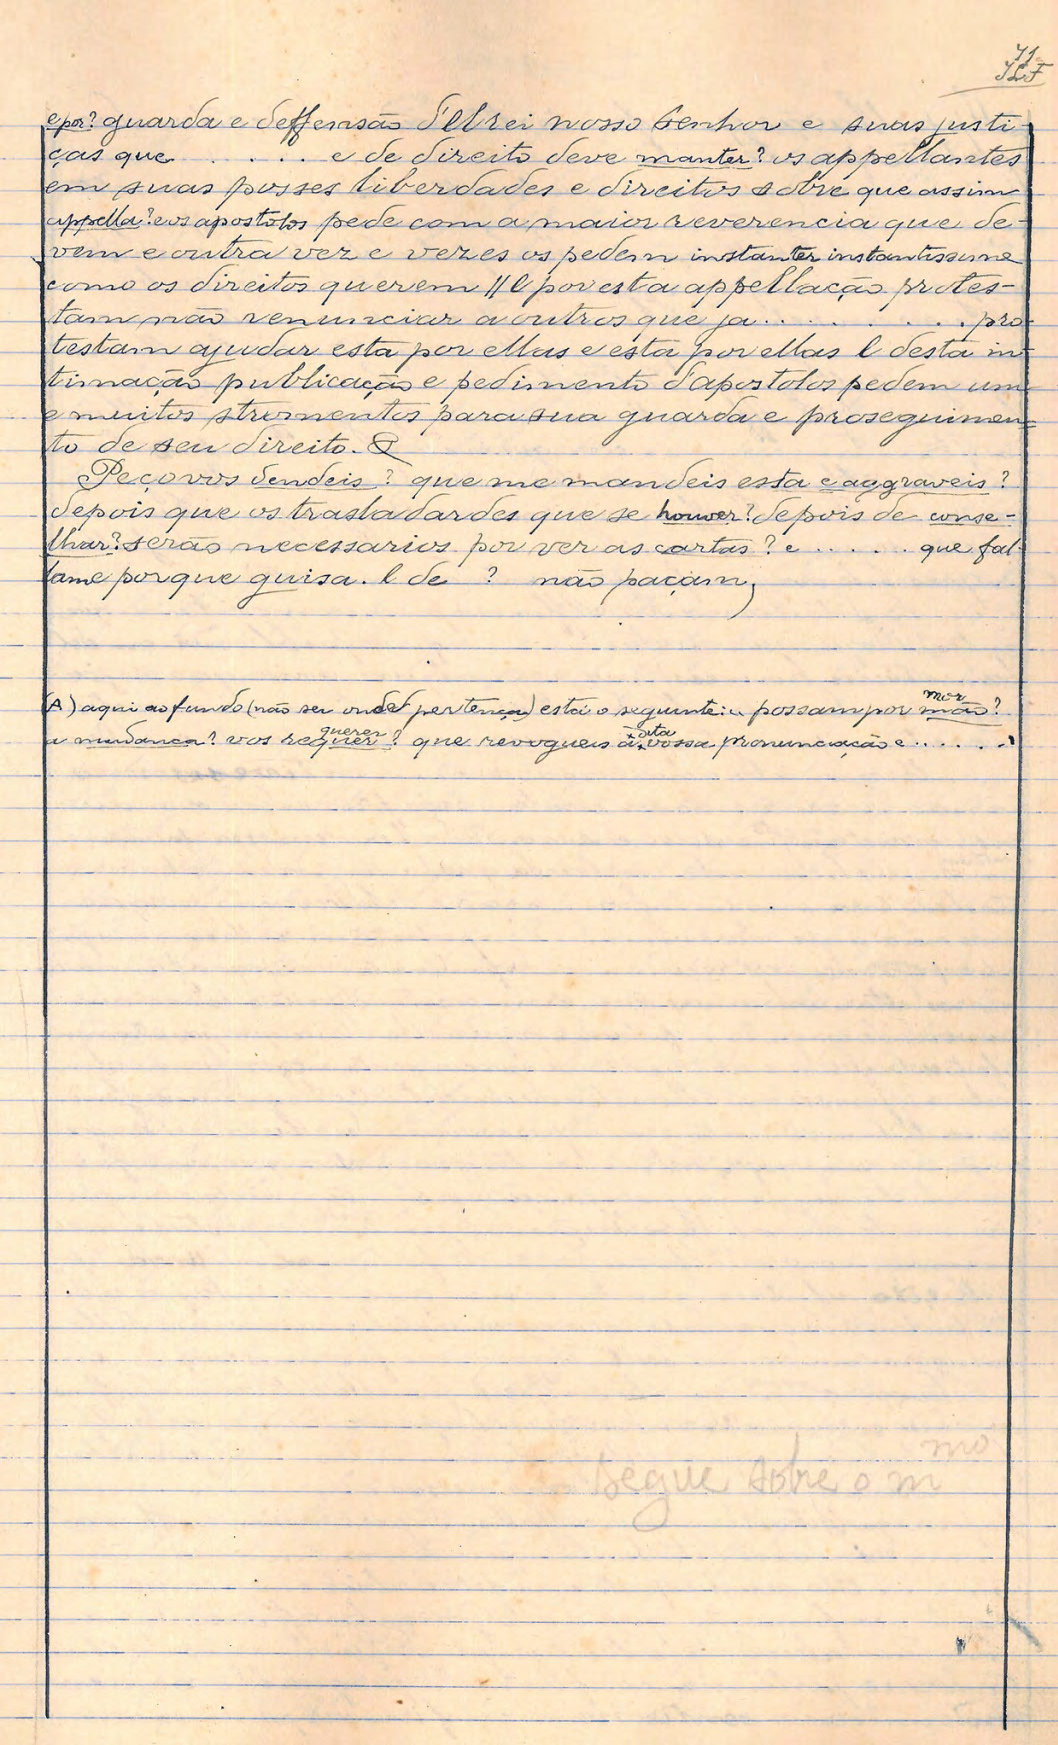 71
e por? guarda e deffensão d'Elrei nosso Senhor e suas justi-
ças que . . . . . . e de direito deve manter? os appellantes
em suas posses liberdades e direitos sobre que assim
appella? e os apostolos pede com a maior reverencia que de-
vem e outra vez e vezes os pedem instanter instantissime
como os direitos querem // E por esta appellação protes-
tam não renunciar a outros que ja . . . . . . . . . pro-
testam ajudar esta por ellas e esta por ellas E desta in-
timação publicação e pedimento d'apostolos pedem um
e muitos stromentos para sua guarda e proseguimen-
to de seu direito.
Peço vos dendeis? que me mandeis esta e aggraveis?
depois que os trasladardes que se houver? depois de conse-
lhar? serão necessarios por ver as cartas? e . . . . . que fal-
lame porque guisa. E de ? não paçam,
(A) aqui ao fundo (não sei onde pertença) está o seguinte: possam por mão?
mor
a mudanca? vos requer? que revogueis a vossa pronunciação e . . . . . .
querem
dita
segue sobre o m
mo